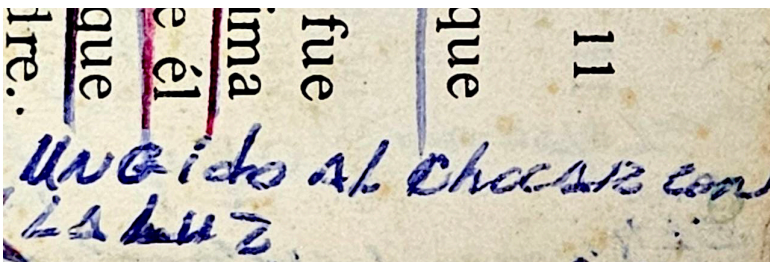 11
que
fue
ima
e él
que
dre.
UNGido AL ChocAR con
LA LUZ